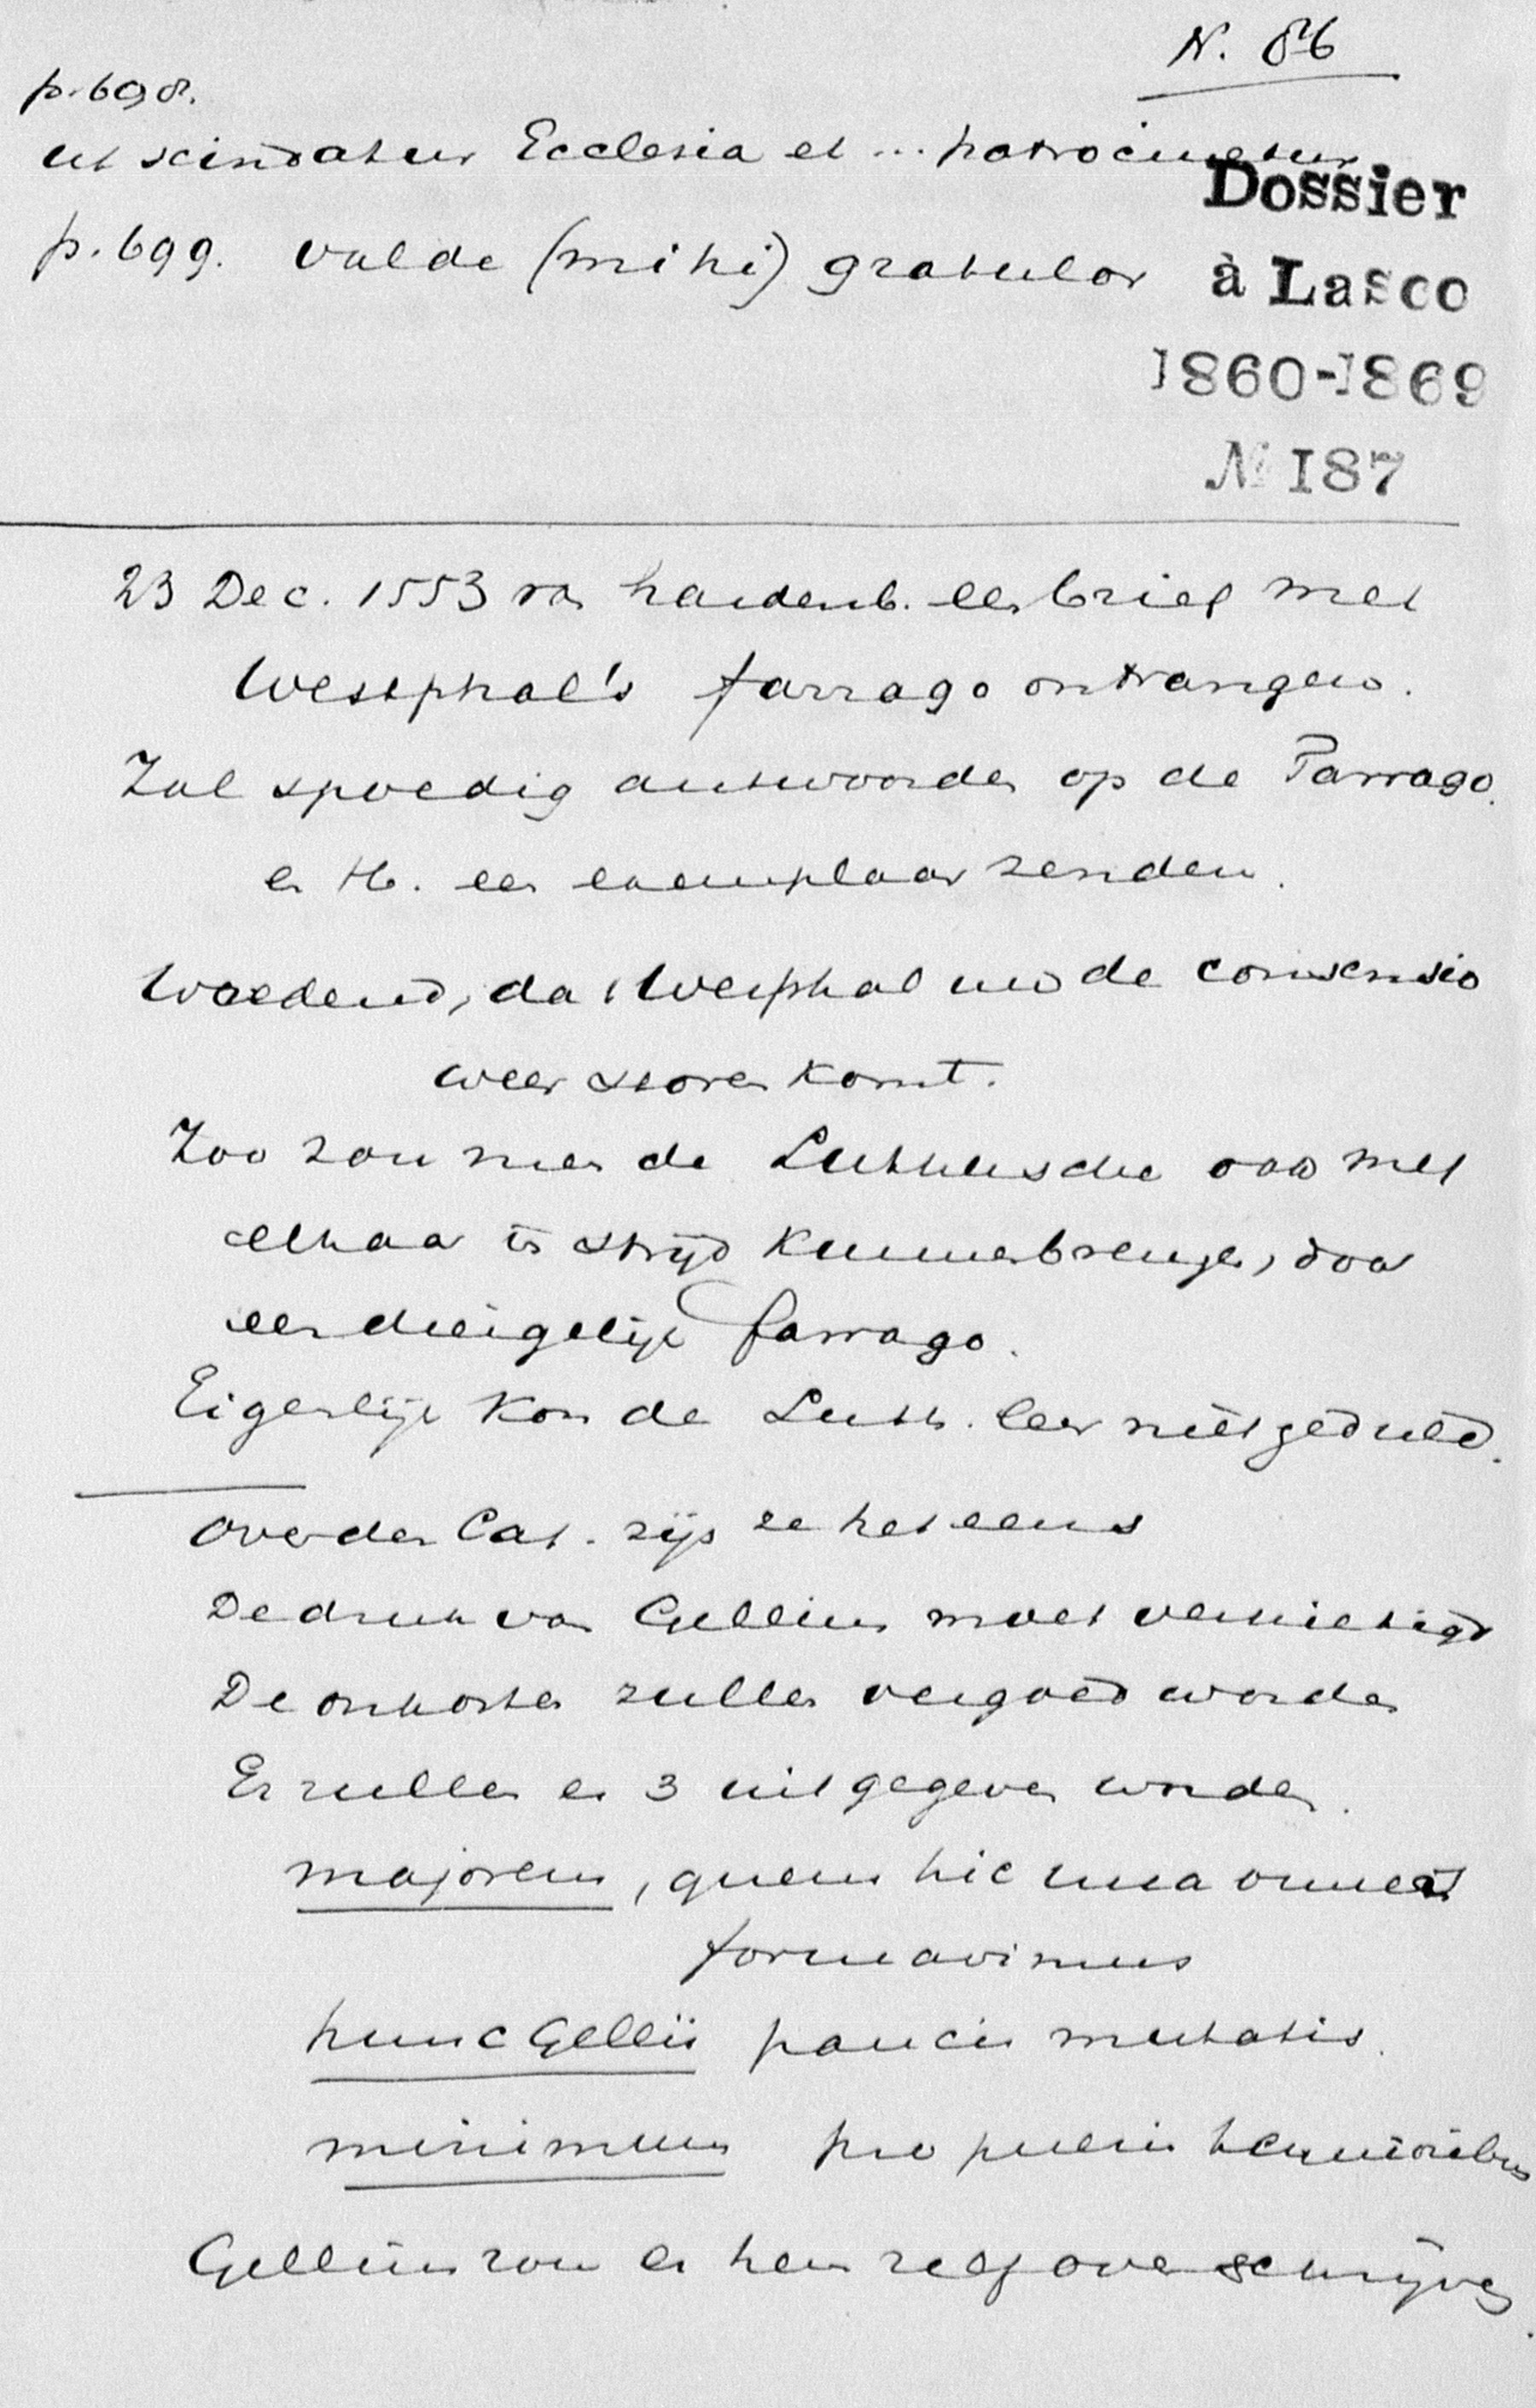 N. 86
p. 698.
ut scindatur Ecclesia et ... patrocinetur
Dossier
p. 699. valde (mihi) gratulor
à Lasco
1860-1869
№ 187
23 Dec. 1553 van hardenb. een brief met
Westphal's farrago ontvangen.
Zal spoedig antwoorden op de Farrago
en H. een exemplaar zenden.
Woedend, dat Wesphal na de consensio
weer storen komt.
Zoo zou men de Luthersche ook met
elkaar in strijd kunnen brengen, door
een dergelijk farrago.
Eigenlijk kon de Luth. leer niet geduld.
Over den Cat. zijn ze het eens
De druk van Gellius moet vernietigd
De onkosten zullen vergoed worden
Er zullen er 3 uitgegeven worden.
majorem, quem hic una omnes
formavimus
hunc Gellii paucis mutatis.
minimum pro pueris
Gellius zou er hem zelf over schrijven.